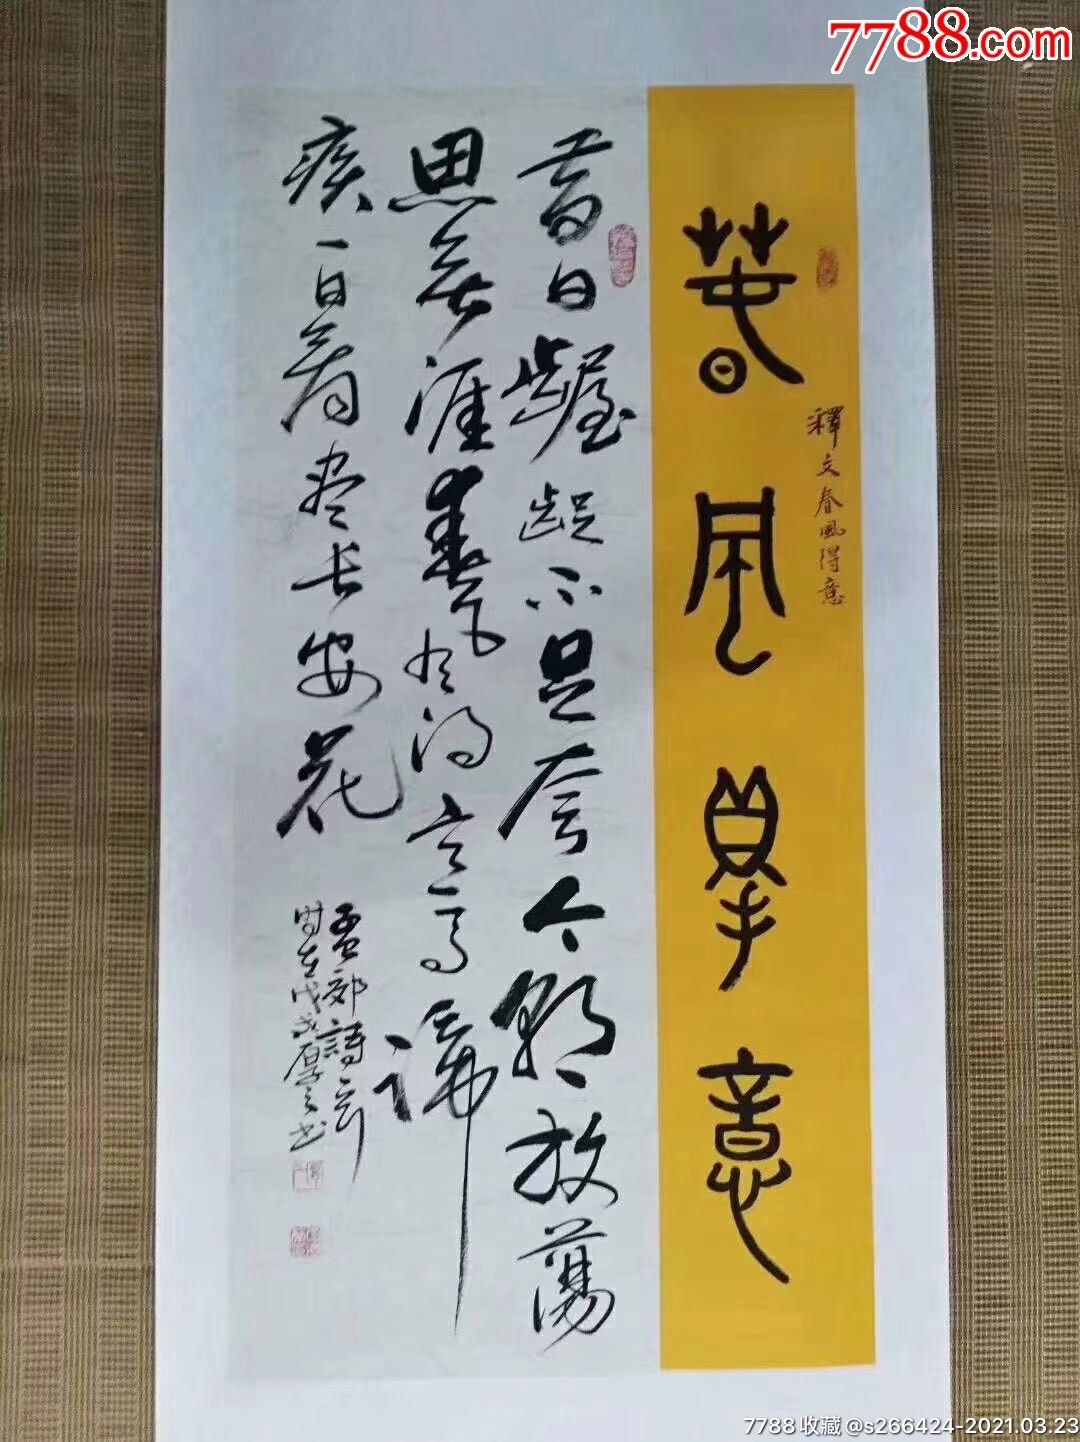 7788.com
春風得意
釋文春風得意
昔日齷齪不足夸今朝放蕩
思無涯春风得意马蹄
疾一日看尽长安花
孟郊詩
时在戊戌厚之书
7788收藏@s266424-2021.03.23